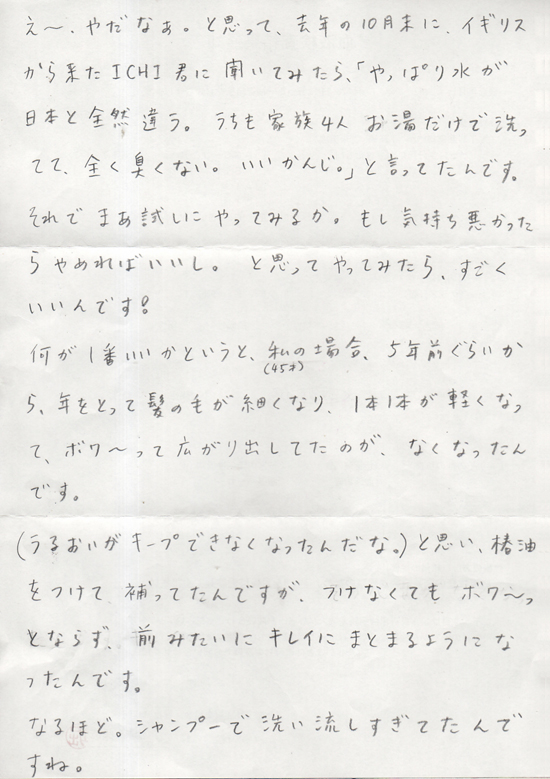 え〜、やだなぁ。と思って、去年の10月末に、イギリス
から来たICHI君に聞いてみたら、「やっぱり水が
日本と全然違う。うちも家族4人お湯だけで洗っ
てて、全く臭くない。いいかんじ。」と言ってたんです。
それでまあ試しにやってみるか。もし気持ち悪かった
らやめればいいし。と思ってやってみたら、すごく
いいんです!
何が1番いいかというと、私の場合、5年前ぐらいか
(45才)
ら、年をとって髪の毛が細くなり、1本1本が軽くなっ
て、ボワ〜って広がり出してたのが、なくなったん
です。
(うるおいがキープできなくなったんだな。)と思い、椿油
をつけて補ってたんですが、つけなくてもボワ〜っ
とならず、前みたいにキレイにまとまるようにな
ったんです。
なるほど。シャンプーで洗い流しすぎてたんで
すね。